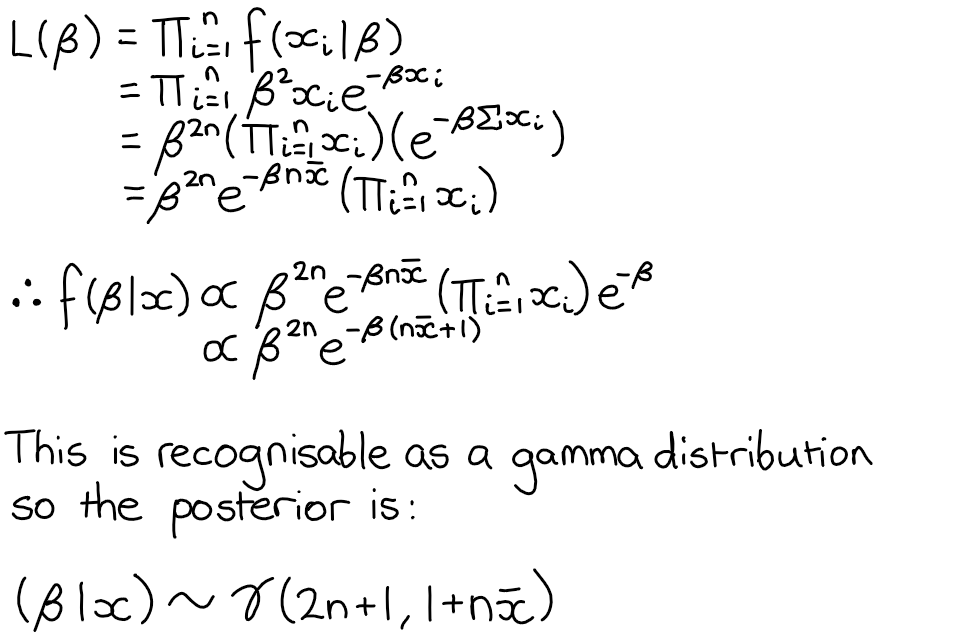 L(β) = ∏ᵢ₌₁ⁿ f(xᵢ|β)
= ∏ᵢ₌₁ⁿ β²xᵢe^{-βxᵢ}
= β²ⁿ(∏ᵢ₌₁ⁿ xᵢ)(e^{-βΣxᵢ})
= β²ⁿe^{-βnx̄}(∏ᵢ₌₁ⁿ xᵢ)
∴ f(β|x) ∝ β²ⁿe^{-βnx̄}(∏ᵢ₌₁ⁿ xᵢ)e^{-β}
∝ β²ⁿe^{-β(nx̄+1)}
This is recognisable as a gamma distribution
so the posterior is:
(β|x) ~ γ(2n+1, 1+nx̄)